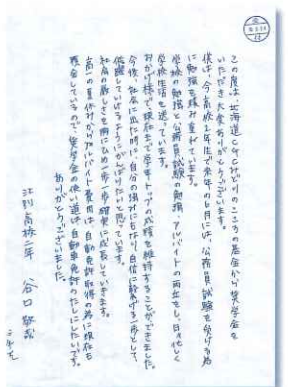 この度は、北海道CGCみどりとこころの基金から奨学金を
いただき大変ありがとうございます。
僕は、今高校2年生で来年の9月には、公務員試験を受ける為
に勉強を積み重ねています。
学校の勉強と公務員試験の勉強、アルバイトの両立をし、日々忙しく
学校生活を送っています。
おかげ様で、現在まで学年トップの成績を維持することができました。
今後、社会に出た時に自分の強みにもなり自信に繋げる一歩として、
活躍していけるようにがんばりたいと思っています。
社会の厳しさを胸にひめ一歩一歩確実に成長していきます。
高一の夏休みからアルバイト費用は、自動車免許取得の為に現在も
預金しているので、奨学金の使い道は自動車免許のたしにしたいです。
ありがとうございました。
江別高校二年 谷口